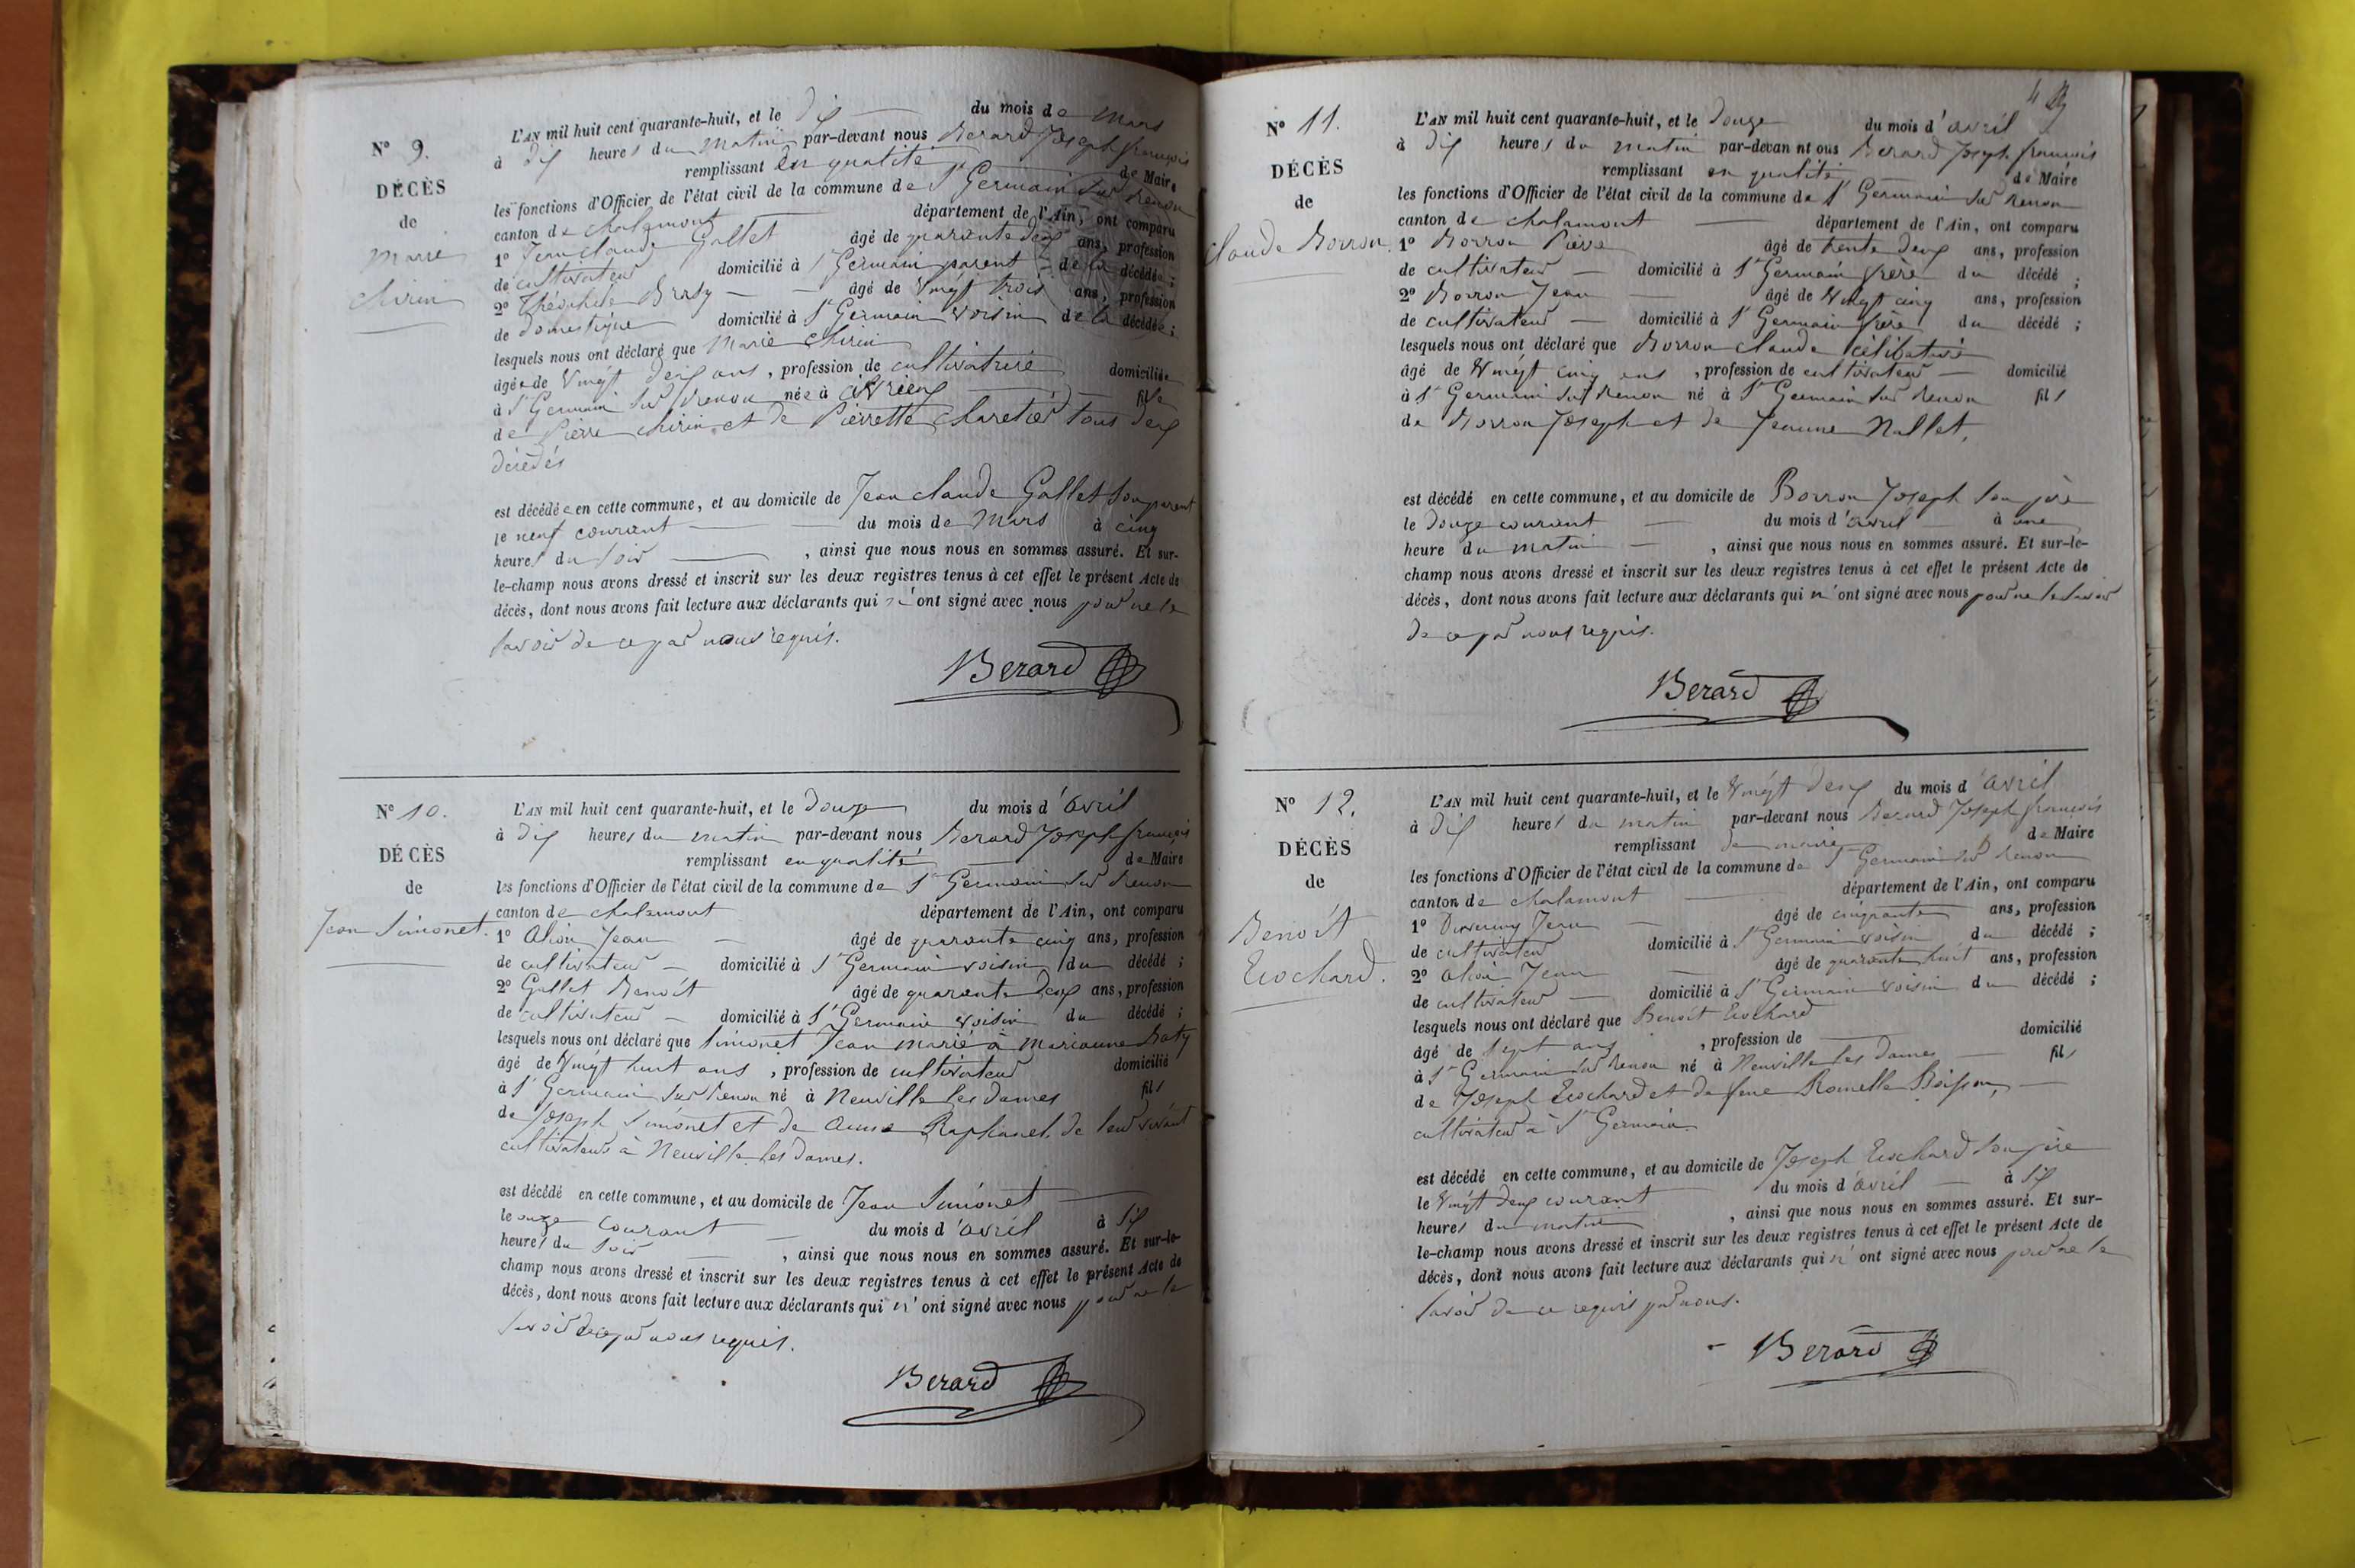 N° 9.
DÉCÈS
de
Marie
Chirin
L'AN mil huit cent quarante-huit, et le dix du mois de Mars
à dix heures du Matin par-devant nous Berard Joseph françois
remplissant en qualité de Maire
les fonctions d'Officier de l'état civil de la commune de St Germain sur renon
canton de chalamont département de l'Ain, ont comparu
1° Jean claude Gallet âgé de quarante deux ans, profession
de cultivateur domicilié à St Germain parent de la décédée ;
2° Théophile âgé de Vingt trois ans, profession
de domestique domicilié à St Germain voisin de la décédée ;
lesquels nous ont déclaré que Marie Chirin
âgée de Vingt deux ans, profession de cultivatrice domiciliée
à St Germain sur renon née à fille
de Pierre chirin et de Pierrette charetier tous deux
décédés
est décédée en cette commune, et au domicile de Jean claude Gallet son parent
le neuf courant du mois de Mars à cinq
heures du soir, ainsi que nous nous en sommes assuré. Et sur-
le-champ nous avons dressé et inscrit sur les deux registres tenus à cet effet le présent Acte de
décès, dont nous avons fait lecture aux déclarants qui n'ont signé avec nous pour ne le
savoir de ce par nous requis.
Berard
N° 10.
DÉCÈS
de
Jean Simonet.
L'AN mil huit cent quarante-huit, et le douze du mois d'avril
à dix heures du matin par-devant nous Berard Joseph françois
remplissant en qualité de Maire
les fonctions d'Officier de l'état civil de la commune de St Germain sur renon
canton de chalamont département de l'Ain, ont comparu
1° Jean âgé de quarante cinq ans, profession
de cultivateur domicilié à St Germain voisin du décédé ;
2° Gallet Benoît âgé de quarante deux ans, profession
de cultivateur domicilié à St Germain voisin du décédé ;
lesquels nous ont déclaré que Simonet Jean marié à marianne Baty
âgé de Vingt huit ans, profession de cultivateur domicilié
à St Germain sur renon né à Neuville les dames fils
de Joseph Simonet et de anne Raphanel de leur vivant
cultivateurs à Neuville les dames.
est décédé en cette commune, et au domicile de Jean Simonet
le onze courant du mois d'avril à six
heures du soir, ainsi que nous nous en sommes assuré. Et sur-le-
champ nous avons dressé et inscrit sur les deux registres tenus à cet effet le présent Acte de
décès, dont nous avons fait lecture aux déclarants qui n'ont signé avec nous pour ne le
savoir de ce par nous requis.
Berard
N° 11.
DÉCÈS
de
claude Borron
L'AN mil huit cent quarante-huit, et le douze du mois d'avril
à dix heures du matin par-devan nt ous Berard Joseph françois
remplissant en qualité de Maire
les fonctions d'Officier de l'état civil de la commune de St Germain sur renon
canton de chalamont département de l'Ain, ont comparu
1° Borron Pierre âgé de trente deux ans, profession
de cultivateur domicilié à St Germain frère du décédé ;
2° Borron Jean âgé de Vingt cinq ans, profession
de cultivateur domicilié à St Germain frère du décédé ;
lesquels nous ont déclaré que Borron claude célibataire
âgé de Vingt cinq ans, profession de cultivateur domicilié
à St Germain sur renon né à St Germain sur renon fils
de Borron Joseph et de Jeanne Nallet,
est décédé en cette commune, et au domicile de Borron Joseph son père
le douze courant du mois d'avril à une
heure du matin, ainsi que nous nous en sommes assuré. Et sur-le-
champ nous avons dressé et inscrit sur les deux registres tenus à cet effet le présent Acte de
décès, dont nous avons fait lecture aux déclarants qui n'ont signé avec nous pour ne le savoir
de ce par nous requis.
Berard
N° 12.
DÉCÈS
de
Benoît
Trochard.
L'AN mil huit cent quarante-huit, et le Vingt deux du mois d'avril
à dix heures du matin par-devant nous Berard Joseph françois
remplissant de maire de Maire
les fonctions d'Officier de l'état civil de la commune de St Germain sur renon
canton de chalamont département de l'Ain, ont comparu
1° Jean âgé de cinquante ans, profession
de cultivateur domicilié à St Germain voisin du décédé ;
2° Jean âgé de quarante huit ans, profession
de cultivateur domicilié à St Germain voisin du décédé ;
lesquels nous ont déclaré que Benoît Trochard
âgé de sept ans, profession de domicilié
à St Germain sur renon né à Neuville les dames fils
de Joseph Trochard et de feue
cultivateur à St Germain
est décédé en cette commune, et au domicile de Joseph Trochard son père
le Vingt deux courant du mois d'avril à six
heures du matin, ainsi que nous nous en sommes assuré. Et sur-
le-champ nous avons dressé et inscrit sur les deux registres tenus à cet effet le présent Acte de
décès, dont nous avons fait lecture aux déclarants qui n'ont signé avec nous pour ne le
savoir de ce requis par nous.
Berard